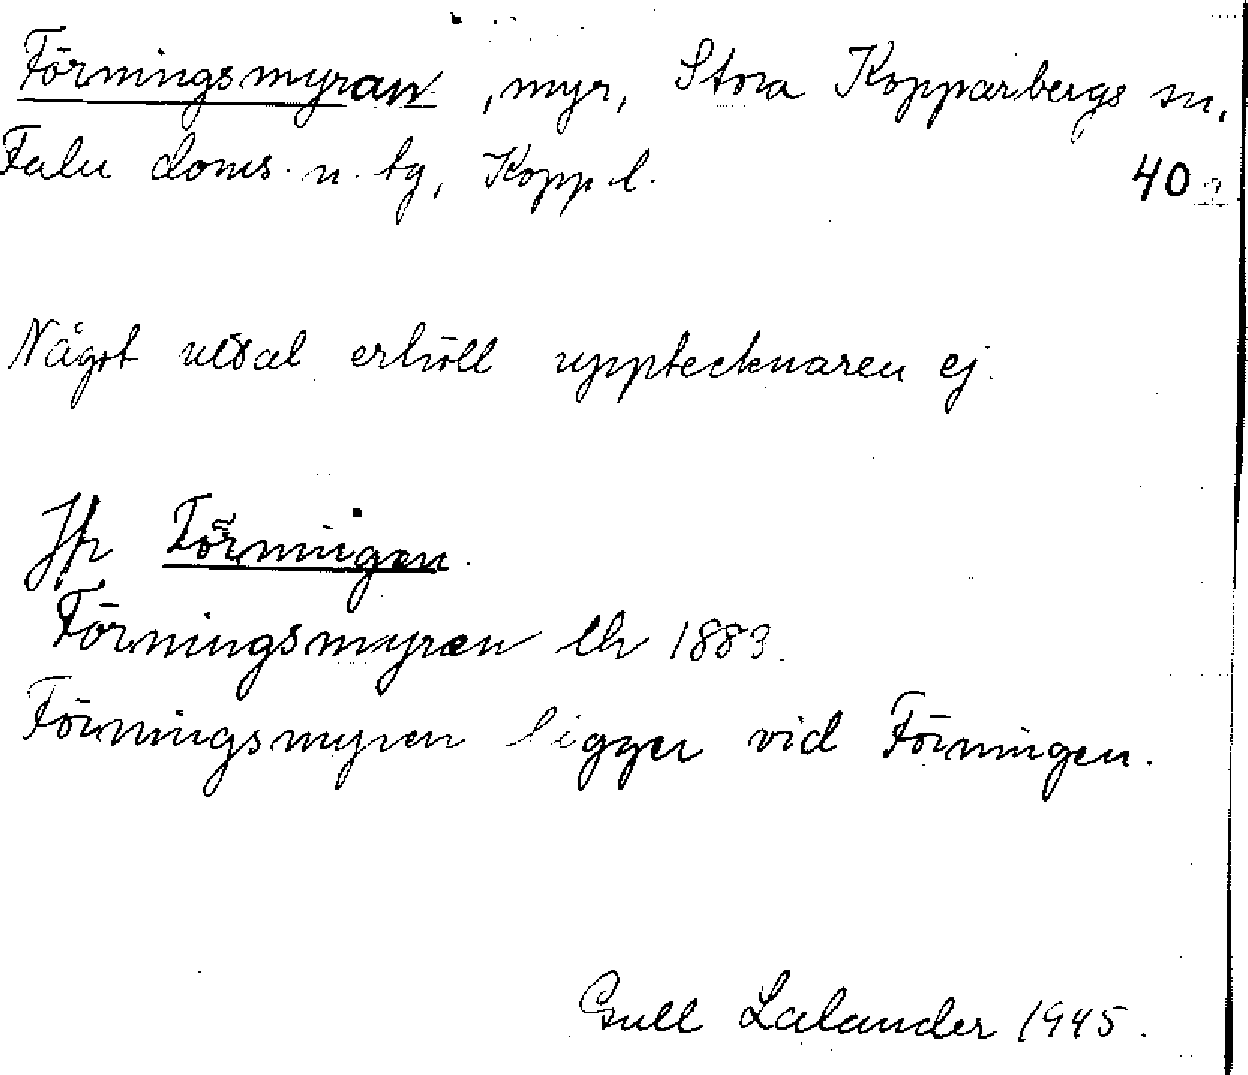 Förningsmyran, myr, Stora Kopparbergs sn,
Falu doms. n. tg, Kopp l.
40
Något uttal erhöll upptecknaren ej.
Jfr Förningen.
Förningsmyran Ek 1883.
Förningsmyren ligger vid Förningen.
Gull Lalander 1945.